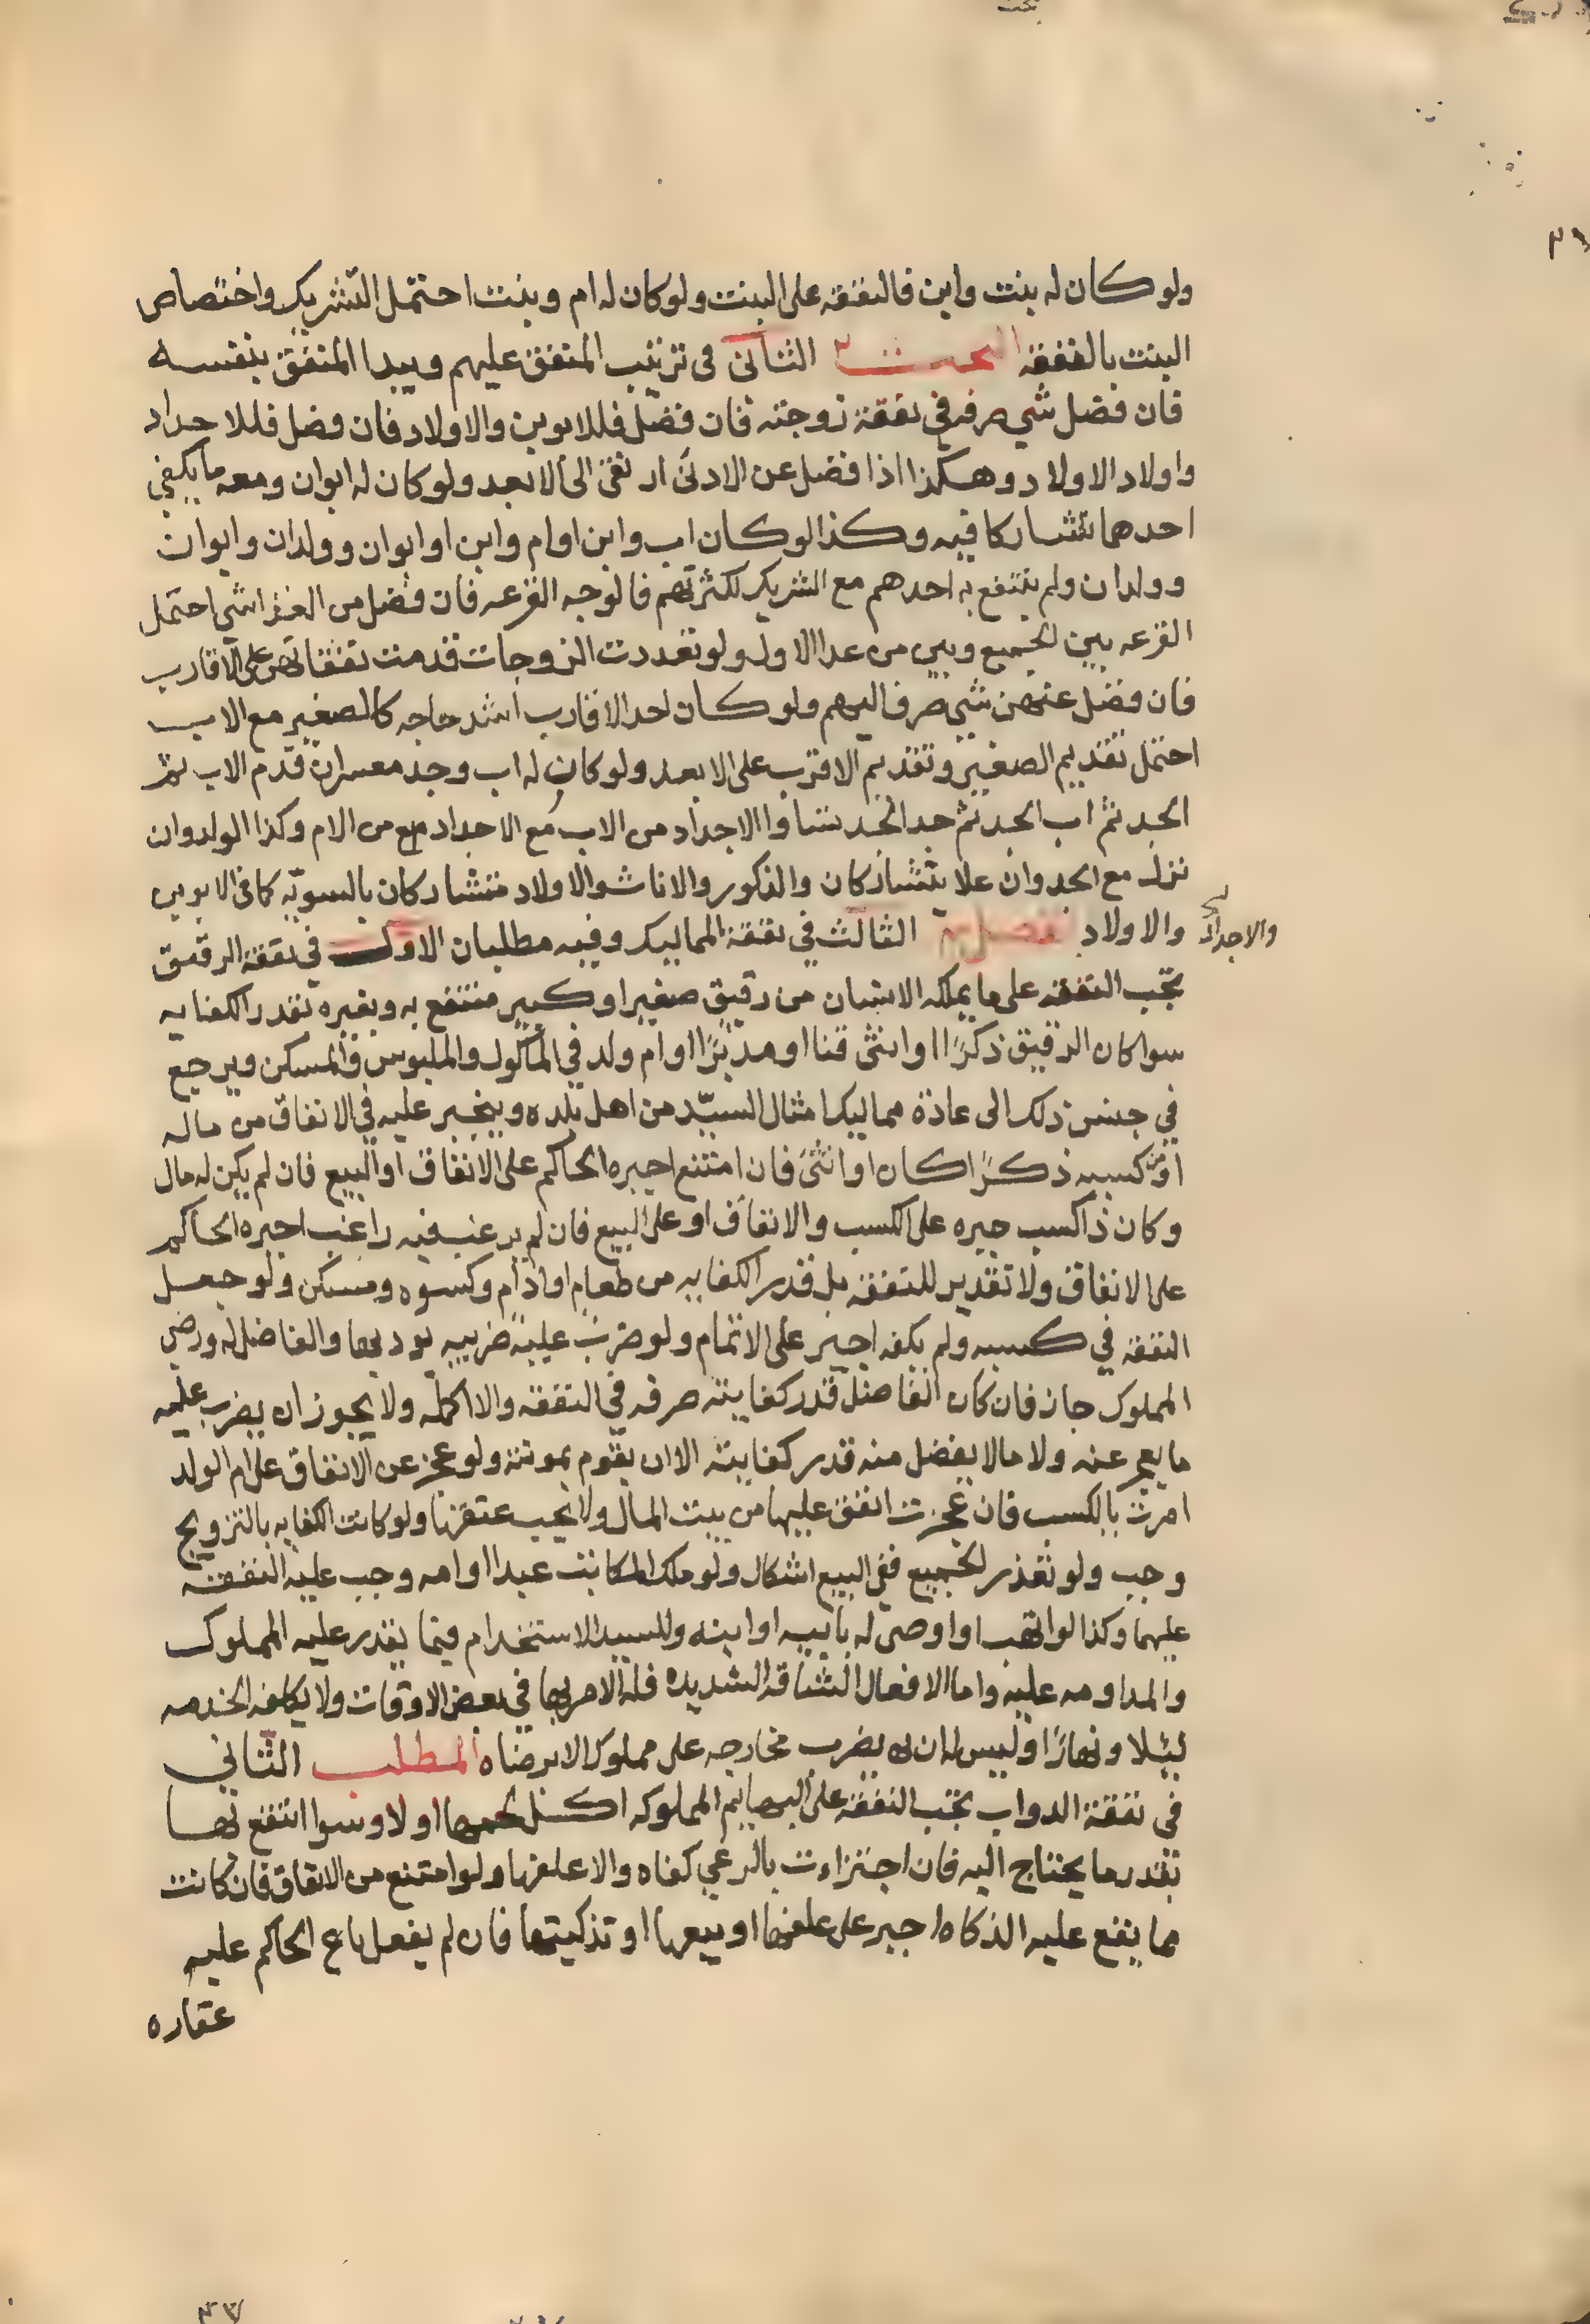 ولو كان له بنت وابن فالنفقه على البنت ولو كان له ام وبنت احتمل التشريك واختصاص
البنت بالنفقه البحث الثاني في ترتيب المنفق عليهم ويبدا المنفق بنفسه
فان فضل شي صرفه في نفقة زوجته فان فضل فللابوين والاولاد فان فضل فللاجداد
واولاد الاولاد وهكذا اذا فضل عن الادنى ارتقى الى الابعد ولو كان له ابوان ومعه ما يكفي
احدهما تشاركا فيه وكذا لو كان اب وابن او ام وابن او ابوان وولدان وابوان
وولدان ولم ينتفع به احدهم مع الشريك لكثرتهم فالوجه القرعه فان فضل من الغذا شي احتمل
القرعه بين الجميع وبين من عدا الاول ولو تعددت الزوجات قدمت نفقاتهن على الاقارب
فان فضل عنهن شي صرف اليهم ولو كان احد الاقارب اشد حاجه كالصغير مع الاب
احتمل تقديم الصغير وتقديم الاقرب على الابعد ولو كان له اب وجد معسران قدم الاب ثم
الجد ثم اب الجد ثم جد الجد تساوا الاجداد من الاب مع الاجداد مع من الام وكذا الولد وان
نزل مع الجد وان علا يتشاركان والذكور والاناث والاولاد متشاركان بالسويّه كما في الابوين
والاولاد الفصل الثالث في نفقة المماليك وفيه مطلبان الاول في نفقة الرقيق
والاجداد
تجب النفقه على ما يملكه الانسان من رقيق صغير او كبير منتفع به وبغيره بقدر الكفايه
سوا كان الرقيق ذكرًا او انثى قنا او مدبرًا او ام ولد في المأكول والملبوس والمسكن ويرجع
في جنس ذلك الى عادة مماليك امثال السيّد من اهل بلده ويتخير عليه في الانفاق من ماله
او من كسبه ذكرًا كان او انثى فان امتنع اجبره الحاكم على الانفاق او البيع فان لم يكن له مال
وكان ذا كسب جبره على الكسب والانفاق او على البيع فان لم يرغب فيه راغب اجبره الحاكم
على الانفاق ولا تقدير للنفقه بل قدر الكفايه من طعام او ادام وكسوه ومسكن ولو جعل
النفقه في كسبه ولم يكفه اجبر على الاتمام ولو ضرب عليه ضريبه يوديها والفاضل له ورضي
المملوك جاز فان كان الفاضل قدر كفايته صرفه في النفقه والا اكمله ولا يجوز ان يضرب عليه
ما يعجز عنه ولا ما لا يفضل منه قدر كفايته الا ان يقوم بموتنه ولو عجز عن الانفاق على ام الولد
امرت بالكسب فان عجزت انفق عليها من بيت المال ولا يجب عتقها ولو كانت الكفايه بالتزويج
وجب ولو تعذر الجميع ففي البيع اشكال ولو ملك المكاتب عبدا او امه وجب عليه النفقه
عليهما وكذا لو اتهب او اوصى له بابيه او ابنه وللسيد الاستخدام فيما يقدر عليه المملوك
والمداومه عليه واما الافعال الشاقه الشديده فله الامر بها في بعض الاوقات ولا يكلفه الخدمه
ليلا ونهارًا وليس له ان يضرب مخارجه على مملوك الا برضاه المطلب الثاني
في نفقة الدواب تجب النفقه على البهايم المملوكه اكل لحمها او لا وسوا انتفع بها
بقدر ما يحتاج اليه فان اجتزاءت بالرعي كفاه والا علفها ولو امتنع من الانفاق فان كانت
مما يقع عليه الذكاه اجبر على علفها او بيعها او تذكيتها فان لم يفعل باع الحاكم عليه
عقاره